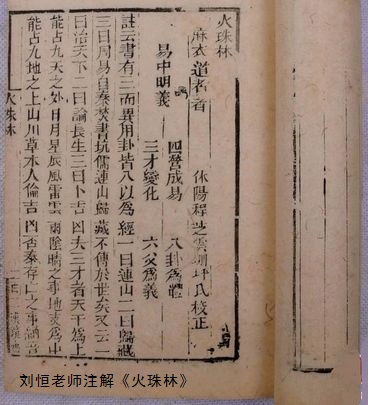 火珠林
麻衣道者著 休陽程芝雲 坪氏校正
易中明義
四營成易 八卦為體
三才變化 六爻為義
註云書有三而異用卦皆八以為經一曰連山二曰歸藏
三曰周易自秦焚書坑儒連山歸藏不傳於世矣又云一
曰治天下二曰論長生三曰卜吉凶夫三才者天爻為上
能占九天之外日月星辰風雷雲雨陰晴之事地爻為中
能占九地之上山川草木人倫吉凶否泰存亡之事
火珠林
刘恒老师注解《火珠林》